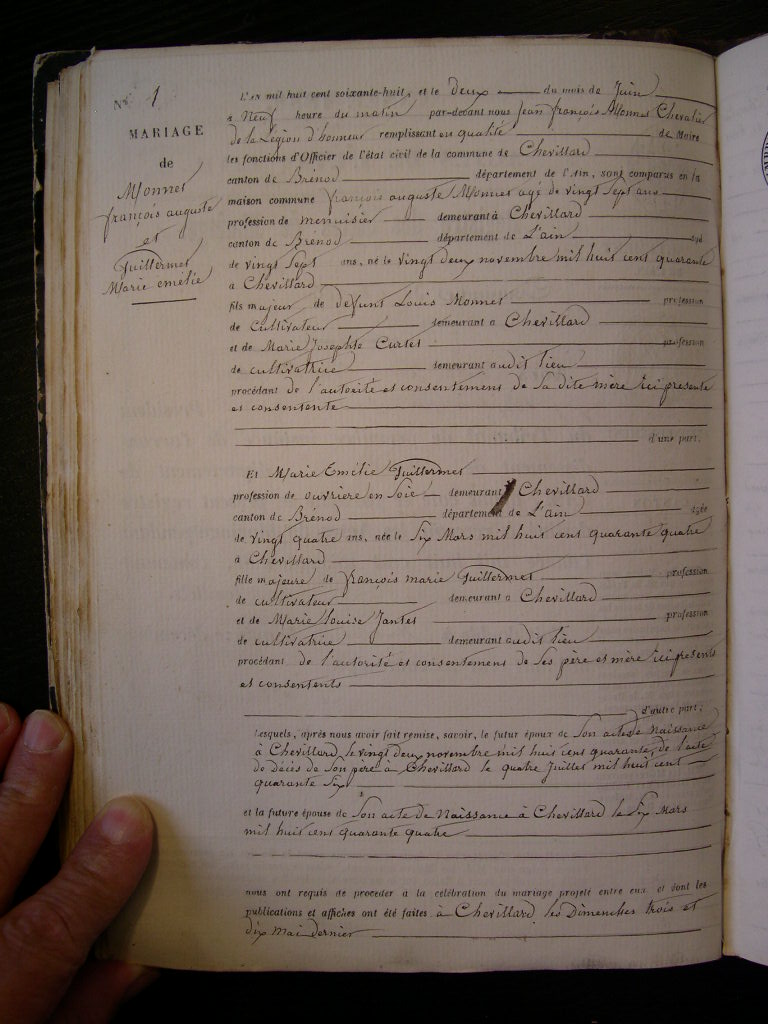 N° 1
MARIAGE
de
Monnet
françois auguste
et
Guillermet
Marie emélie
L'an mil huit cent soixante-huit, et le deux du mois de Juin
à Neuf heure du matin par-devant nous Jean françois Monnet Chevalier
de la Légion d'honneur remplissant en qualité de Maire
les fonctions d'Officier de l'état civil de la commune de Chevillard
canton de Brénod département de l'Ain, sont comparus en la
maison commune françois auguste Monnet agé de vingt Sept ans
profession de menuisier demeurant à Chevillard
canton de Brenod département de L'ain agé
de vingt Sept ans, né le vingt deux novembre mil huit cent quarante
à Chevillard
fils majeur de defunt Louis Monnet profession
de Cultivateur demeurant à Chevillard
et de Marie Josephte Curtet profession
de cultivatrice demeurant audit lieu
procédant de l'autorité et consentement de Sa dite mère ici présente
et consentente
d'une part.
Et Marie Emélie Guillermet
profession de ouvrière en Soie demeurant Chevillard
canton de Brénod département de L'ain agée
de vingt quatre ans, née le Six Mars mil huit cent quarante quatre
à Chevillard
fille majeure de françois marie Guillermet profession
de cultivateur demeurant à Chevillard
et de Marie Louise Jantet profession
de cultivatrice demeurant audit lieu
procédant de l'autorité et consentement de Ses père et mère ici présents
et consentents
d'autre part;
Lesquels, après nous avoir fait remise, savoir, le futur époux de Son acte de Naissance
à Chevillard le vingt deux novembre mil huit cent quarante, de l'acte
de Décès de Son père à Chevillard le quatre Juillet mil huit cent
quarante Six
et la future épouse de Son acte de Naissance à Chevillard le Six Mars
mil huit cent quarante quatre
nous ont requis de procéder à la célébration du mariage projeté entre eux et dont les
publications et affiches ont été faites à Chevillard les Dimenches trois et
dix Mai dernier